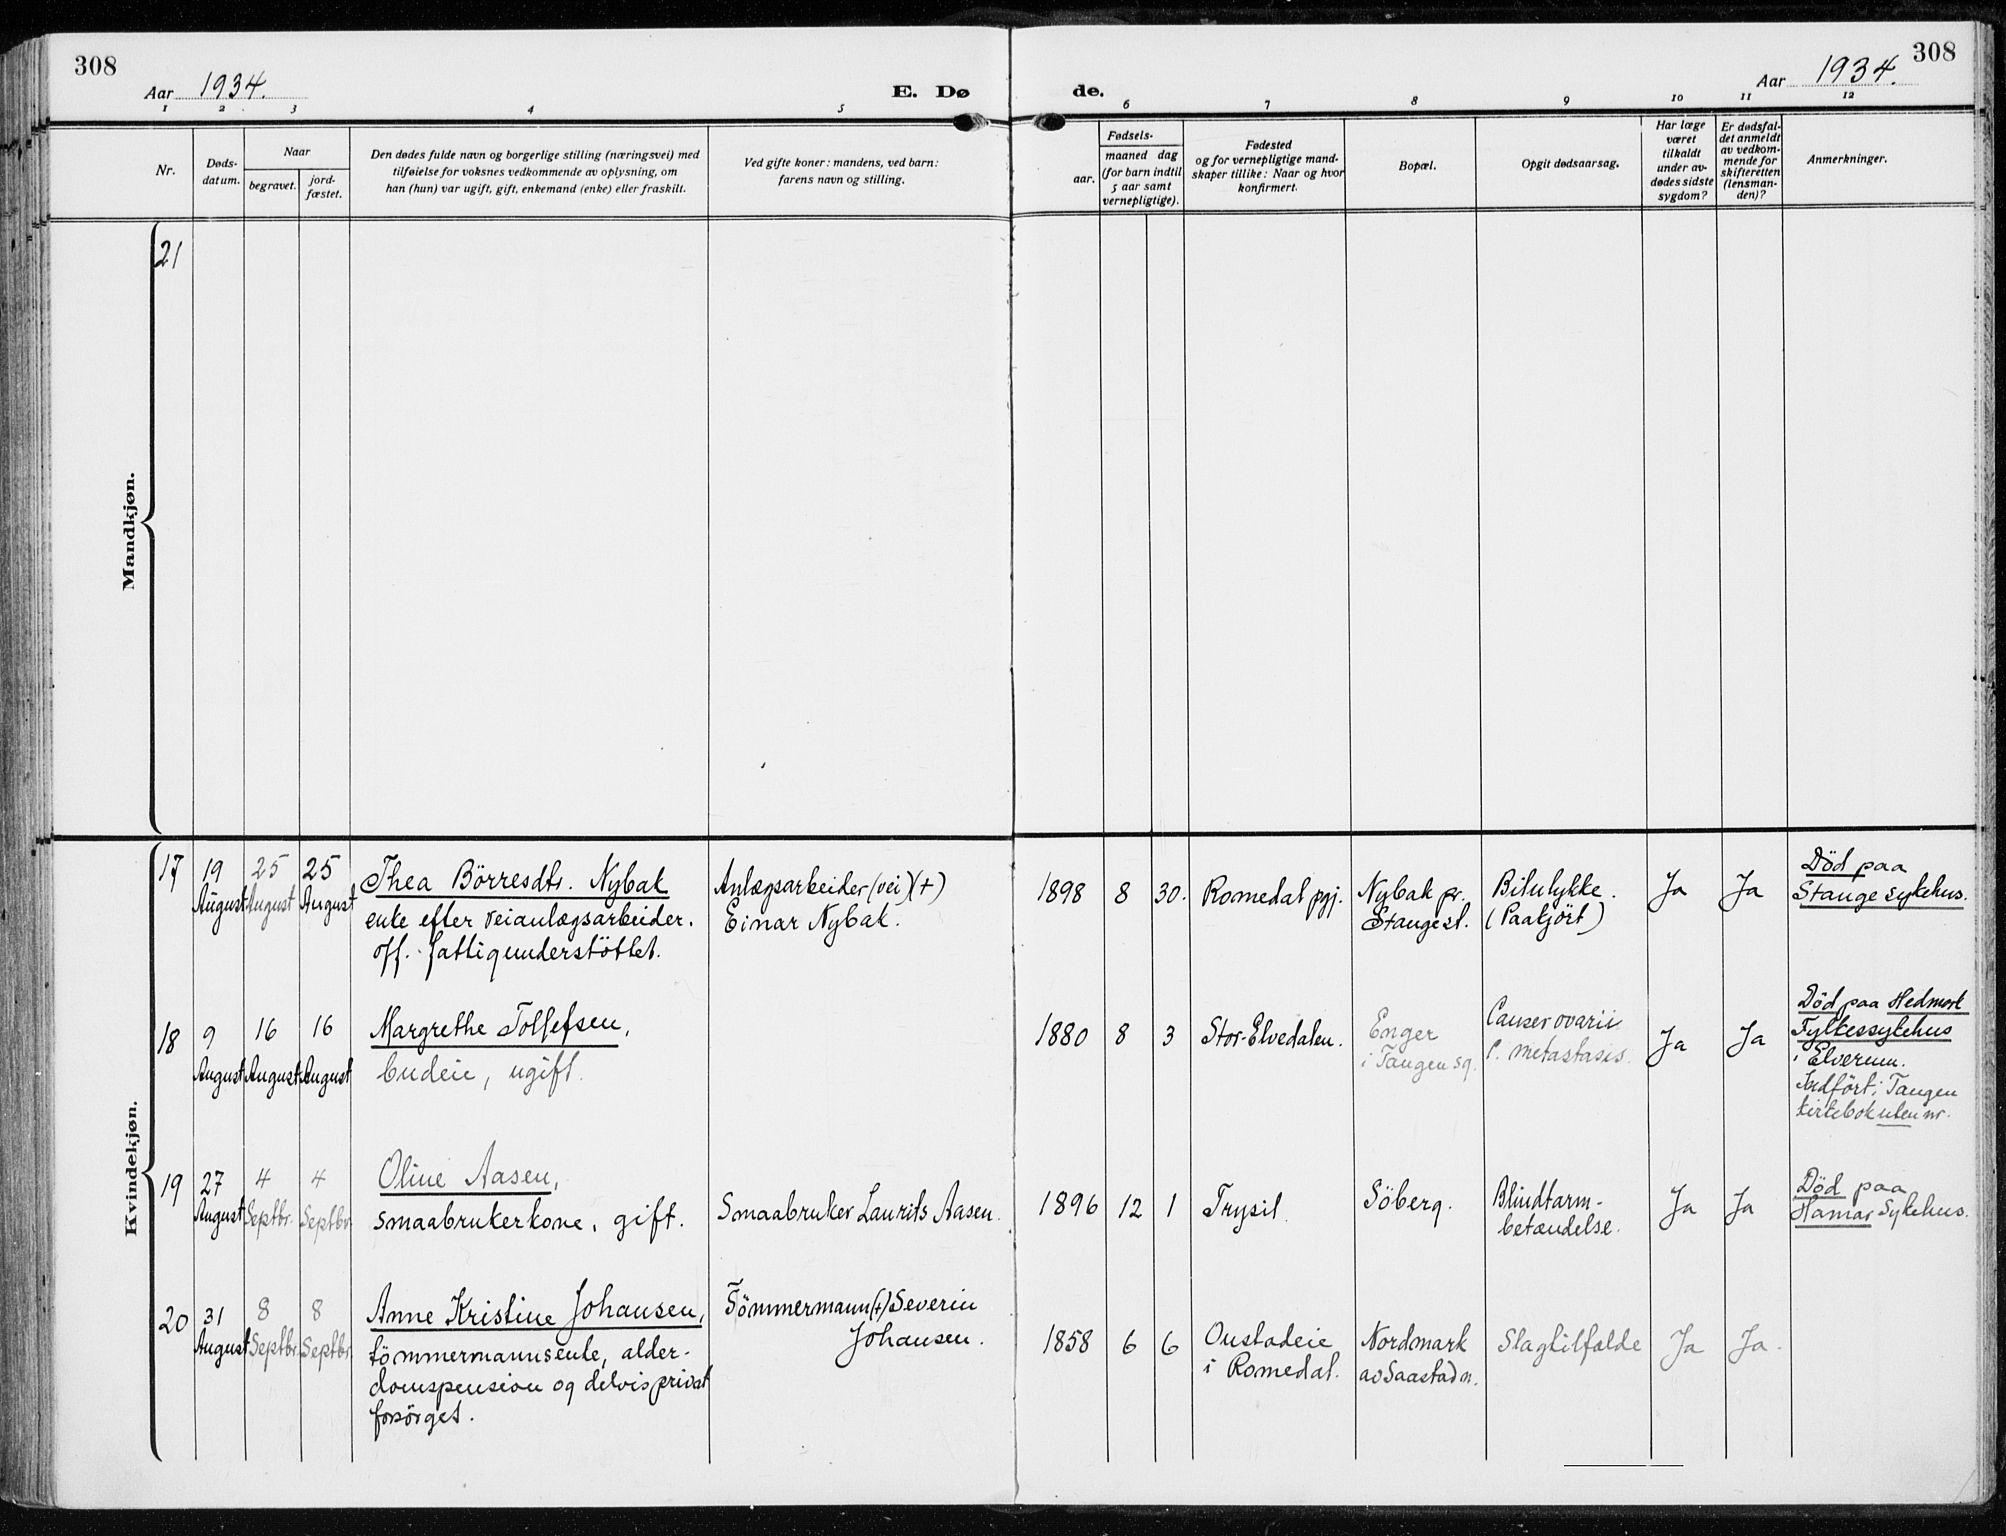 308
Aar 1934.
E. Dø
de.
Aar 1934.
308
1 2 3 4 5 6 7 8 9 10 11 12
Nr.
Døds-
datum.
Naar
begravet.
jord-
fæstet.
Den dødes fulde navn og borgerlige stilling (næringsvei) med
tilføielse for voksnes vedkommende av oplysning, om
han (hun) var ugift, gift, enkemand (enke) eller fraskilt.
Ved gifte koner: mandens, ved barn:
farens navn og stilling.
Fødsels-
aar.
maaned dag
(for barn indtil
5 aar samt
vernepligtige).
Fødested
og for vernepligtige mand-
skaper tillike: Naar og hvor
konfirmert.
Bopæl.
Opgit dødsaarsag.
Har læge
været
tilkaldt
under av-
dødes sidste
sygdom?
Er dødsfal-
det anmeldt
av vedkom-
mende for
skifteretten
(lensman-
den)?
Anmerkninger.
Mandkjøn.
21
Kvindekjøn.
17
19
August
25
August
25
August
Thea Börresdtr. Nybak
enke efter veianlægsarbeider.
off. fattigunderstöttet.
Anlægsarbeider (vei) (+)
Einar Nybak.
1898 8 30.
Romedal pgj.
Nybak pr.
Stange st.
Bilulykke.
(Paakjört)
Ja
Ja
Död paa
Stange sykehus.
18
9
August
16
August
16
August
Margrethe Tollefsen,
budeie, ugift.
1880 8 3
Stor-Elvedalen.
Enger
i Tangen sg.
Canser ovarii
c. metastasis.
Ja
Ja
Död paa Hedmark
Fylkessykehus
i Elverum.
Indfört i Tangen
kirkebok uten nr.
19
27
August
4
Septbr.
4
Septbr.
Oline Aasen,
smaabrukerkone, gift.
Smaabruker Laurits Aasen.
1896 12 1
Trysil.
Söberg.
Blindtarm-
betændelse.
Ja
Ja
Död paa
Hamar Sykehus.
20
31
August
8
Septbr.
8
Septbr.
Anne Kristine Johansen,
tömmermannsenke, alder-
domspension og delvis privat
forsörget.
Tömmermann (+) Severin
Johansen.
1858 6 6
Oustadeie
i Romedal.
Nordmark
av Saastad n.
Slagtilfælde
Ja
Ja.